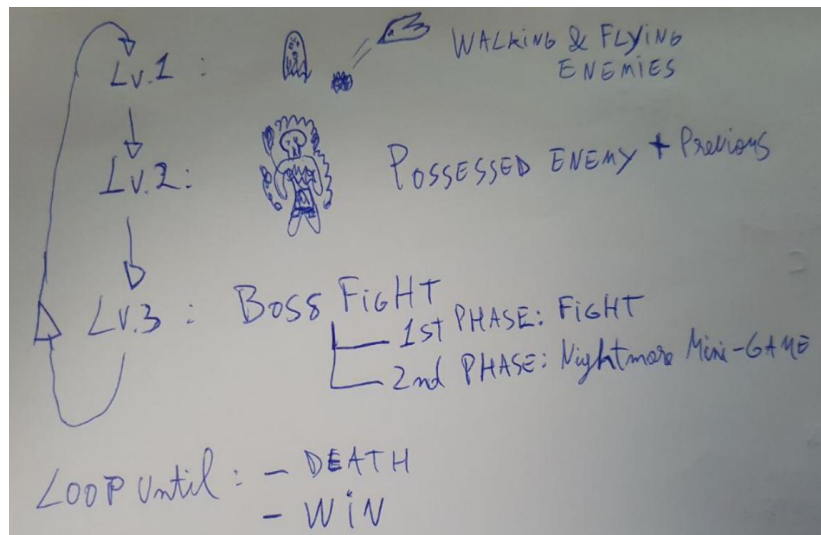 Lv.1 : WALKING & FLYING
ENEMIES
Lv.2: POSSESSED ENEMY + Previous
Lv.3 : BOSS FIGHT
1st PHASE: FIGHT
2nd PHASE: Nightmare Mini-GAME
LOOP Until : - DEATH
- WIN